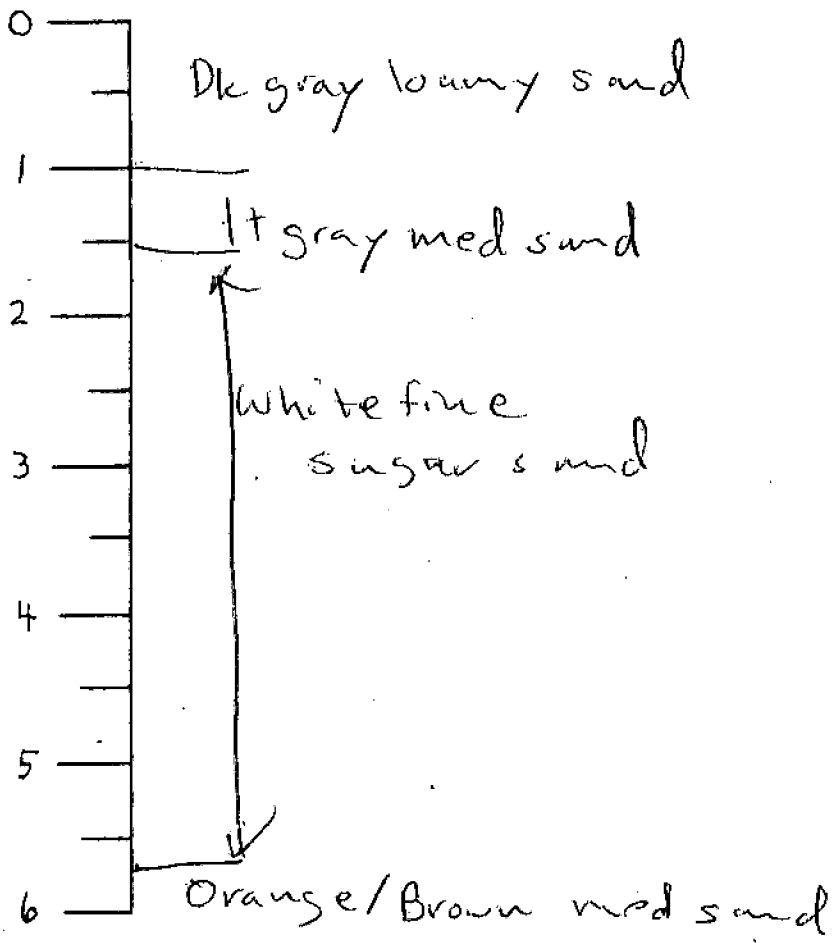 0
Dk gray loamy sand
1
lt gray med sand
2
White fine
3
sugar sand
4
5
Orange/Brown med sand
6